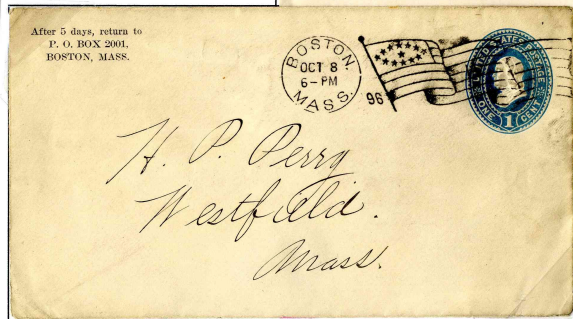 After 5 days, return to
P. O. BOX 2001,
BOSTON, MASS.
BOSTON.
OCT 8
6-PM
MASS.
96
UNITED STATES POSTAGE
ONE 1 CENT
H. P. Perry
Westfield.
Mass.